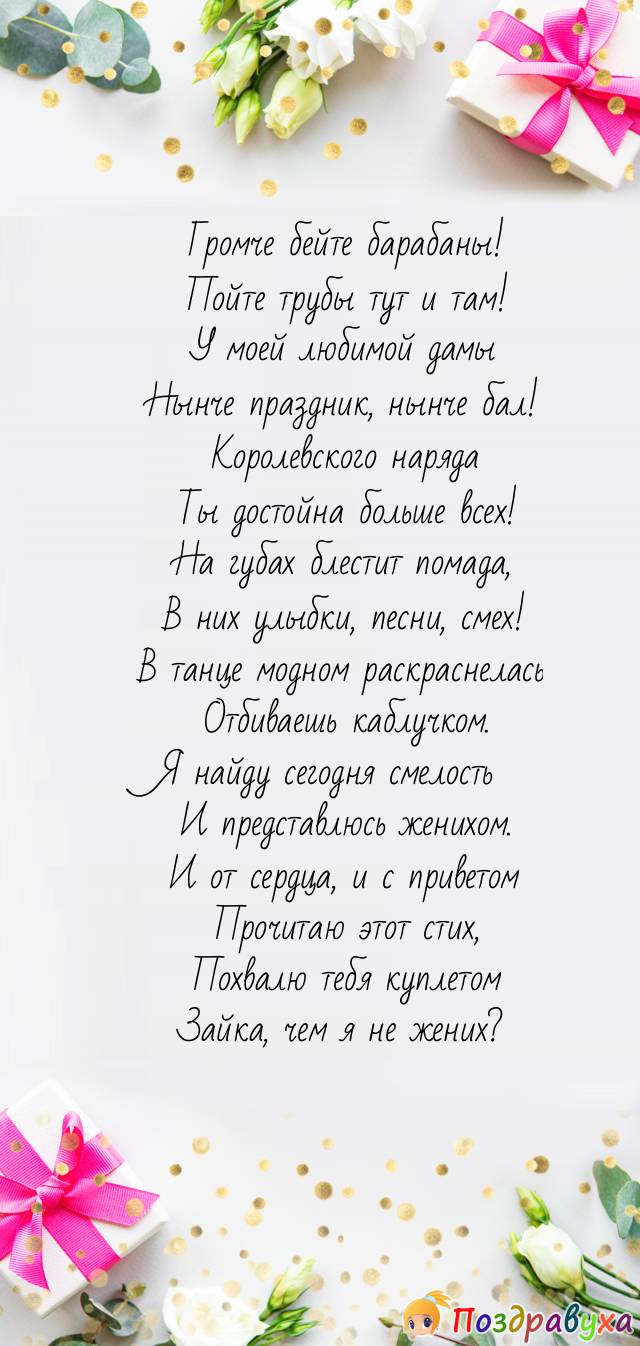 Громче бейте барабаны!
Пойте трубы тут и там!
У моей любимой дамы
Нынче праздник, нынче бал!
Королевского наряда
Ты достойна больше всех!
На губах блестит помада,
В них улыбки, песни, смех!
В танце модном раскраснелась
Отбиваешь каблучком.
Я найду сегодня смелость
И представлюсь женихом.
И от сердца, и с приветом
Прочитаю этот стих,
Похвалю тебя куплетом
Зайка, чем я не жених?
Поздравуха